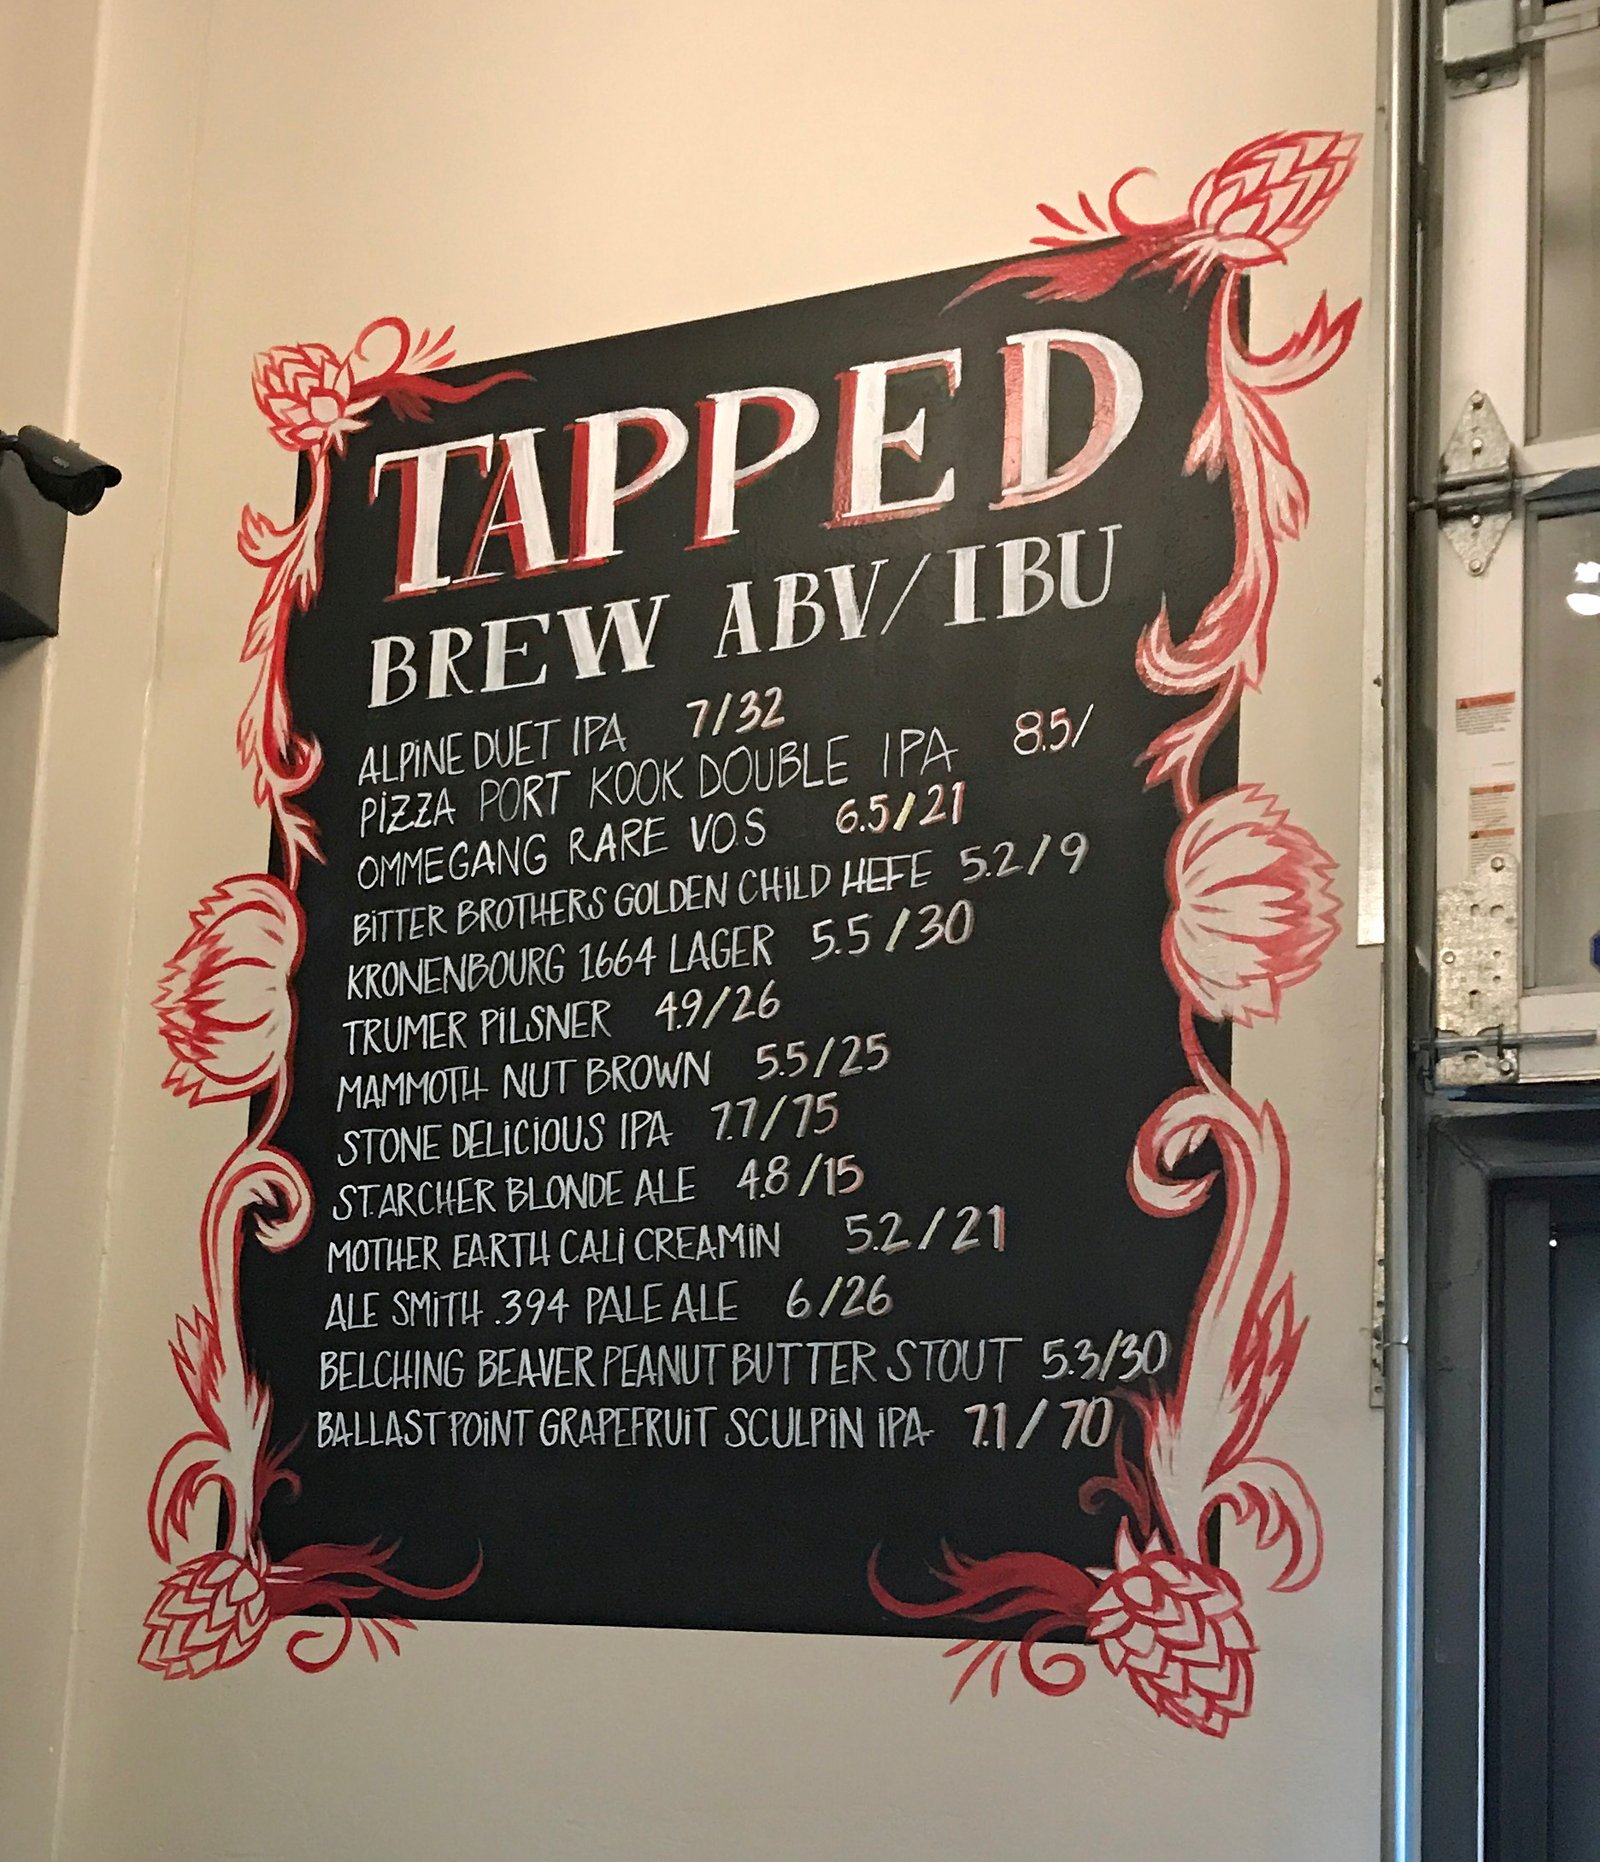 TAPPED
BREW ABV/IBU
ALPINE DUET IPA 7/32
PIZZA PORT KOOK DOUBLE IPA 8.5/
OMMEGANG RARE VOS 6.5/21
BITTER BROTHERS GOLDEN CHILD HEFE 5.2/9
KRONENBOURG 1664 LAGER 5.5/30
TRUMER PILSNER 4.9/26
MAMMOTH NUT BROWN 5.5/25
STONE DELICIOUS IPA 7.7/75
ST.ARCHER BLONDE ALE 4.8/15
MOTHER EARTH CALI CREAMIN 5.2/21
ALE SMITH .394 PALE ALE 6/26
BELCHING BEAVER PEANUT BUTTER STOUT 5.3/30
BALLAST POINT GRAPEFRUIT SCULPIN IPA 7.1/70